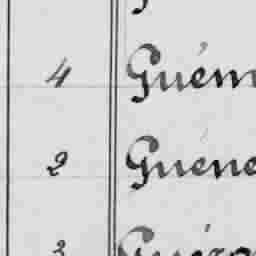 4 Guém
2 Guéne
3